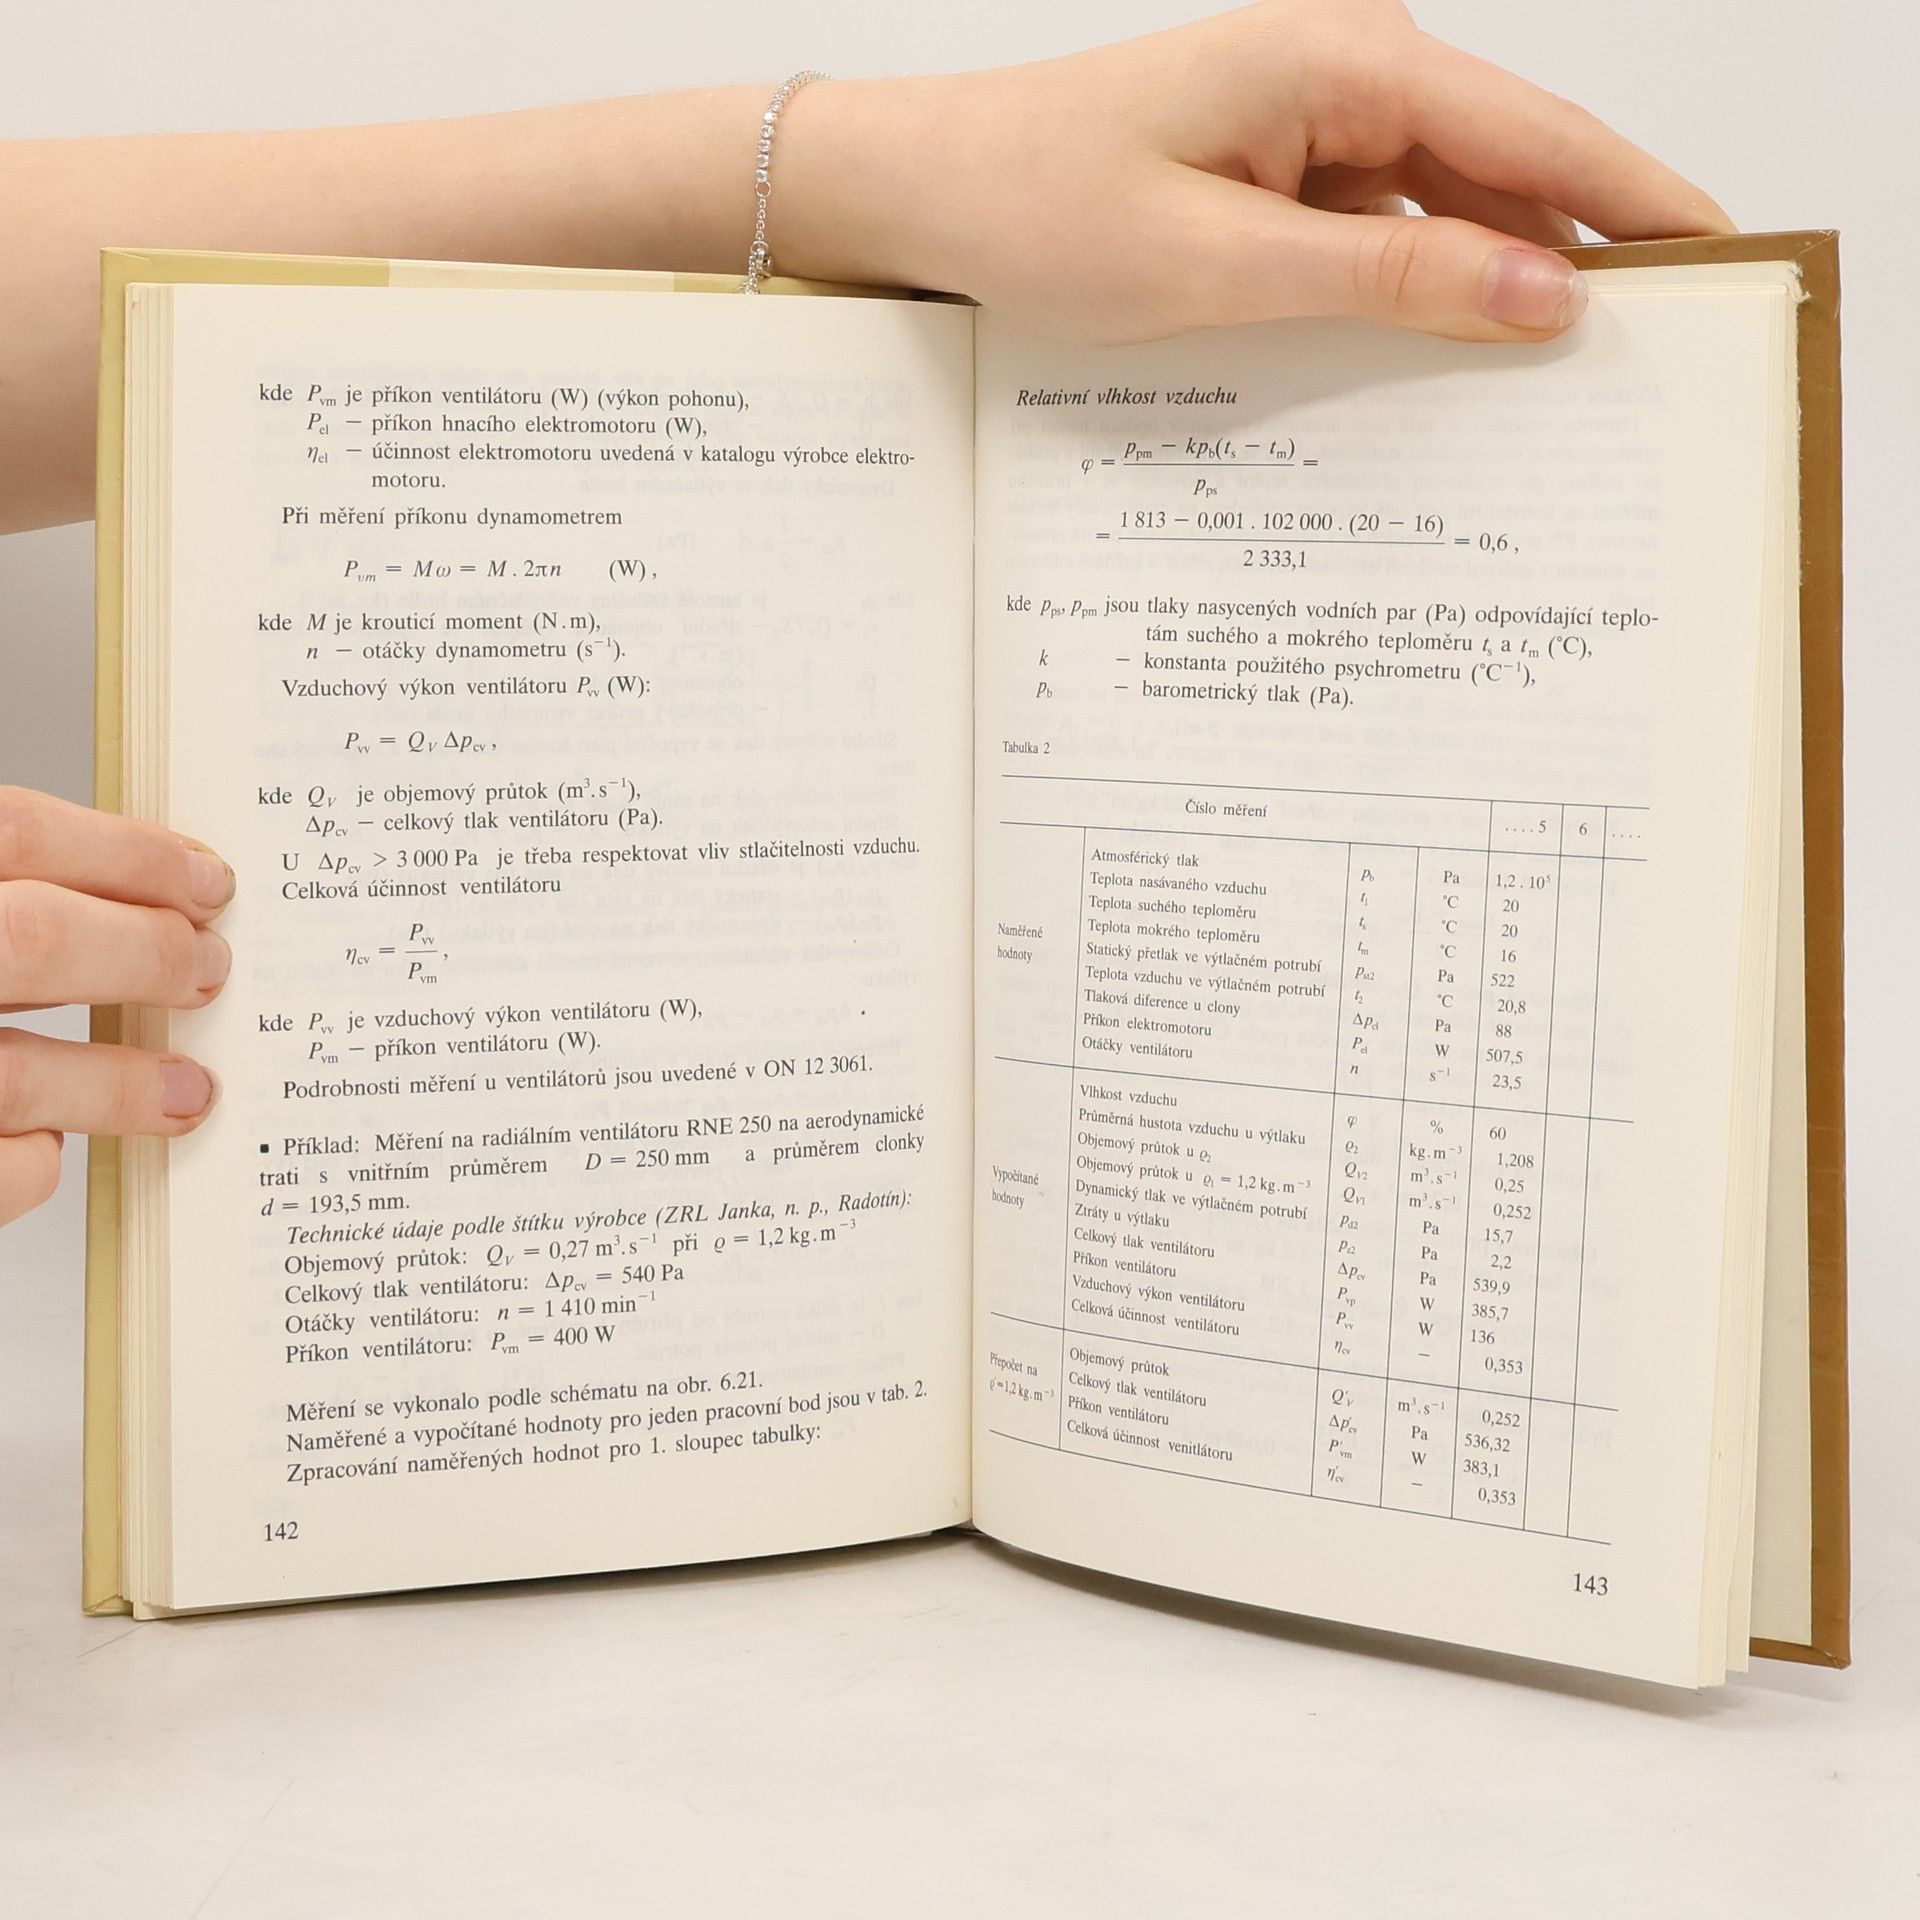 kde P_vm je příkon ventilátoru (W) (výkon pohonu),
P_el — příkon hnacího elektromotoru (W),
η_el — účinnost elektromotoru uvedená v katalogu výrobce elektro-
motoru.
Při měření příkonu dynamometrem
P_vm = Mω = M . 2πn (W) ,
kde M je krouticí moment (N.m),
n — otáčky dynamometru (s⁻¹).
Vzduchový výkon ventilátoru P_vv (W):
P_vv = Q_V Δp_cv ,
kde Q_V je objemový průtok (m³.s⁻¹),
Δp_cv — celkový tlak ventilátoru (Pa).
U Δp_cv > 3 000 Pa je třeba respektovat vliv stlačitelnosti vzduchu.
Celková účinnost ventilátoru
η_cv = P_vv / P_vm ,
kde P_vv je vzduchový výkon ventilátoru (W),
P_vm — příkon ventilátoru (W).
Podrobnosti měření u ventilátorů jsou uvedené v ON 12 3061.
▪ Příklad: Měření na radiálním ventilátoru RNE 250 na aerodynamické
trati s vnitřním průměrem D = 250 mm a průměrem clonky
d = 193,5 mm.
Technické údaje podle štítku výrobce (ZRL Janka, n. p., Radotín):
Objemový průtok: Q_V = 0,27 m³.s⁻¹ při ϱ = 1,2 kg.m⁻³
Celkový tlak ventilátoru: Δp_cv = 540 Pa
Otáčky ventilátoru: n = 1 410 min⁻¹
Příkon ventilátoru: P_vm = 400 W
Měření se vykonalo podle schématu na obr. 6.21.
Naměřené a vypočítané hodnoty pro jeden pracovní bod jsou v tab. 2.
Zpracování naměřených hodnot pro 1. sloupec tabulky:
142
Relativní vlhkost vzduchu
φ = (p_pm — kp_b(t_s — t_m)) / p_ps =
= (1 813 — 0,001 . 102 000 . (20 — 16)) / 2 333,1 = 0,6 ,
kde p_ps, p_pm jsou tlaky nasycených vodních par (Pa) odpovídající teplo-
tám suchého a mokrého teploměru t_s a t_m (°C),
k — konstanta použitého psychrometru (°C⁻¹),
p_b — barometrický tlak (Pa).
Tabulka 2
Číslo měření ....5 6 ....
Naměřené hodnoty
Atmosférický tlak p_b Pa 1,2 . 10⁵
Teplota nasávaného vzduchu t_1 °C 20
Teplota suchého teploměru t_s °C 20
Teplota mokrého teploměru t_m °C 16
Statický přetlak ve výtlačném potrubí p_st2 Pa 522
Teplota vzduchu ve výtlačném potrubí t_2 °C 20,8
Tlaková diference u clony Δp_cl Pa 88
Příkon elektromotoru P_el W 507,5
Otáčky ventilátoru n s⁻¹ 23,5
Vypočítané hodnoty
Vlhkost vzduchu φ % 60
Průměrná hustota vzduchu u výtlaku ϱ_2 kg.m⁻³ 1,208
Objemový průtok u ϱ_2 Q_V2 m³.s⁻¹ 0,25
Objemový průtok u ϱ_1 = 1,2 kg.m⁻³ Q_V1 m³.s⁻¹ 0,252
Dynamický tlak ve výtlačném potrubí p_d2 Pa 15,7
Ztráty u výtlaku p_z2 Pa 2,2
Celkový tlak ventilátoru Δp_cv Pa 539,9
Příkon ventilátoru P_vp W 385,7
Vzduchový výkon ventilátoru P_vv W 136
Celková účinnost ventilátoru η_cv — 0,353
Přepočet na ϱ′=1,2 kg.m⁻³
Objemový průtok Q′_V m³.s⁻¹ 0,252
Celkový tlak ventilátoru Δp′_cv Pa 536,32
Příkon ventilátoru P′_vm W 383,1
Celková účinnost venitlátoru η′_cv — 0,353
143